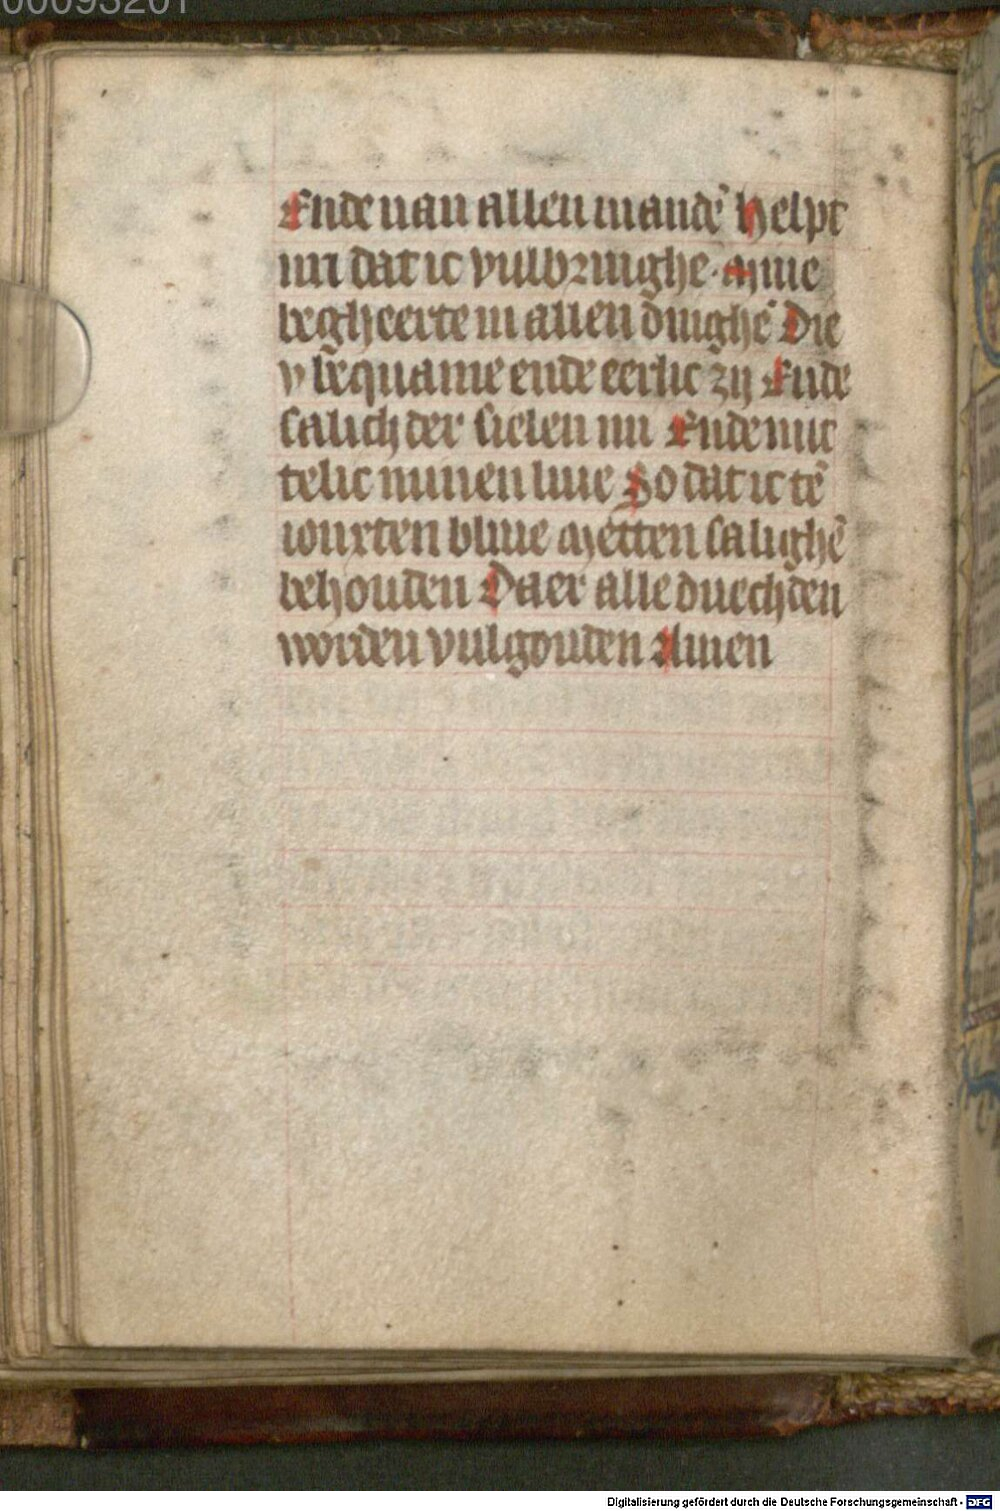 00093201
Ende uan allen mandē helpt
mi dat ic vulbringhe · Mine
begheerte in allen dinghē Die
v beq̄uame ende eerlic zy Ende
salich der sielen mi Ende nut
telic minen liue So dat ic tē
iouxten bliue Metten salighē
behouden Daer alle duechden
worden vulgouden Amen
Digitalisierung gefördert durch die Deutsche Forschungsgemeinschaft - DFG